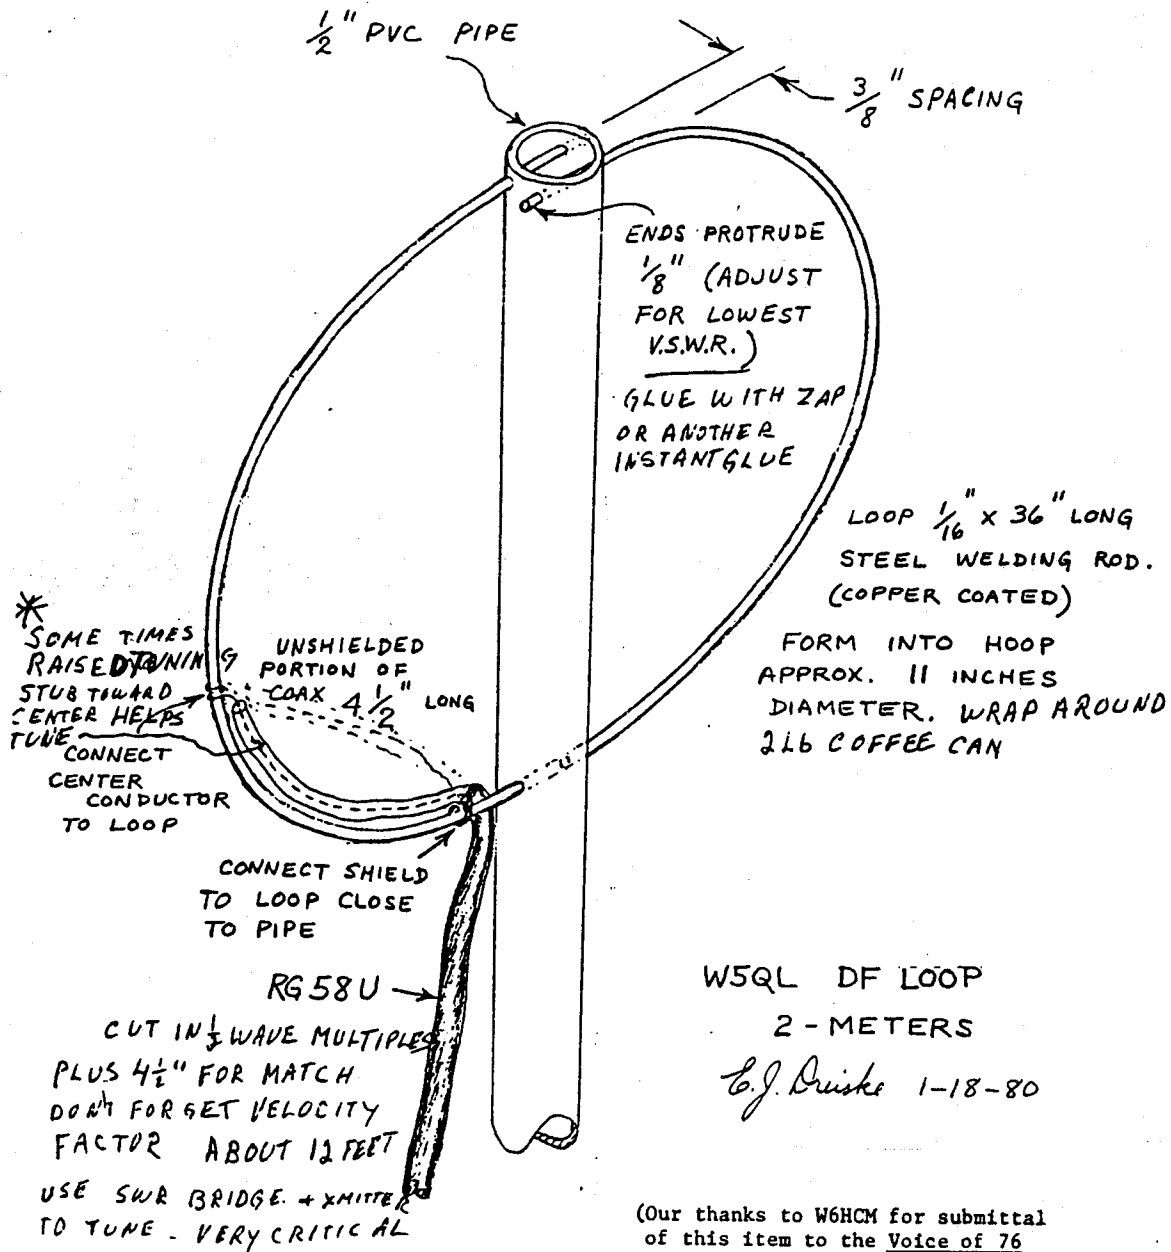 1/2" PVC PIPE
3/8" SPACING
ENDS PROTRUDE
1/8" (ADJUST
FOR LOWEST
V.S.W.R.)
GLUE WITH ZAP
OR ANOTHER
INSTANTGLUE
LOOP 1/16" X 36" LONG
STEEL WELDING ROD.
(COPPER COATED)
FORM INTO HOOP
APPROX. 11 INCHES
DIAMETER. WRAP AROUND
2Lb COFFEE CAN
*
SOME TIMES
RAISED TUNING
STUB TOWARD
CENTER HELPS
TUNE
UNSHIELDED
PORTION OF
COAX 4 1/2" LONG
CONNECT
CENTER
CONDUCTOR
TO LOOP
CONNECT SHIELD
TO LOOP CLOSE
TO PIPE
RG58U
CUT IN 1/2 WAVE MULTIPLES
PLUS 4 1/2" FOR MATCH
DON'T FORGET VELOCITY
FACTOR ABOUT 12 FEET
USE SWR BRIDGE. + XMITTER
TO TUNE - VERY CRITICAL
W5QL DF LOOP
2-METERS
E.J. 1-18-80
(Our thanks to W6HCM for submittal
of this item to the Voice of 76